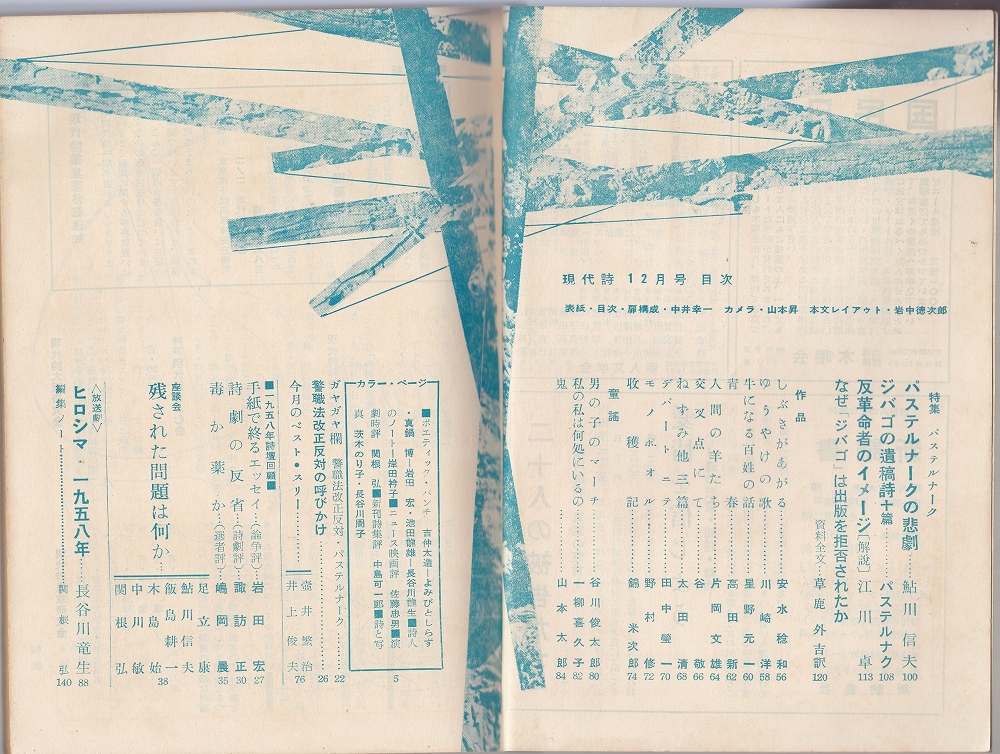 現代詩 12月号 目次
表紙・目次・扉構成・中井幸一 カメラ・山本昇 本文レイアウト・岩中徳次郎
特集 パステルナーク
パステルナークの悲劇……鮎川信夫 100
ジバゴの遺稿詩十篇……パステルナク 108
反革命者のイメージ〔解説〕江川卓 113
なぜ「ジバゴ」は出版を拒否されたか
資料全文…草鹿外吉訳 120
作品
しぶきがあがる……安水稔和 56
ゆうやけの歌……川崎洋 58
牛になる百姓の話……星野元一 60
青春……高田新 62
人間の羊たち……片岡文雄 64
交叉点にて……谷敬 66
ねずみ他三篇……太田清 68
デパートニテ……田中瑩一 70
モノボオル……野村修 72
収穫記……錦米次郎 74
童謡
男の子のマーチ……谷川俊太郎 80
私の私は何処にいるの……一柳喜久子 82
鬼……山本太郎 84
カラー・ページ
■ポエティック・パンチ 吉仲太造―よみびとしらず
・真鍋博―岩田宏・池田龍雄―長谷川龍生■詩人
のノート―岸田衿子■ニュース映画評 佐藤忠男■演
劇時評 関根弘■新刊詩集評 中島可一郎■詩と写
真 茨木のり子・長谷川周子
5
ガヤガヤ欄 警職法改正反対・パステルナーク……22
警職法改正反対の呼びかけ……26
今月のベスト・スリー……壺井繁治
井上俊夫 76
■一九五八年詩壇回顧■
手紙で終るエッセイ…(論争評)…岩田宏 27
詩劇の反省…(詩劇評)…諏訪正 30
毒か薬か…(選者評)…嶋岡晨 35
座談会
残された問題は何か…
足立康
鮎川信夫
飯島耕一
木島始
中川敏
関根弘
38
〈放送劇〉
ヒロシマ・一九五八年……長谷川竜生 88
編集ノート……関根弘 140